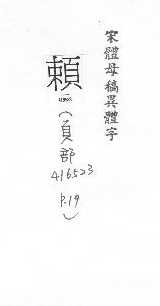 宋體母稿異體字
頼
（頁部
416523
P.19）